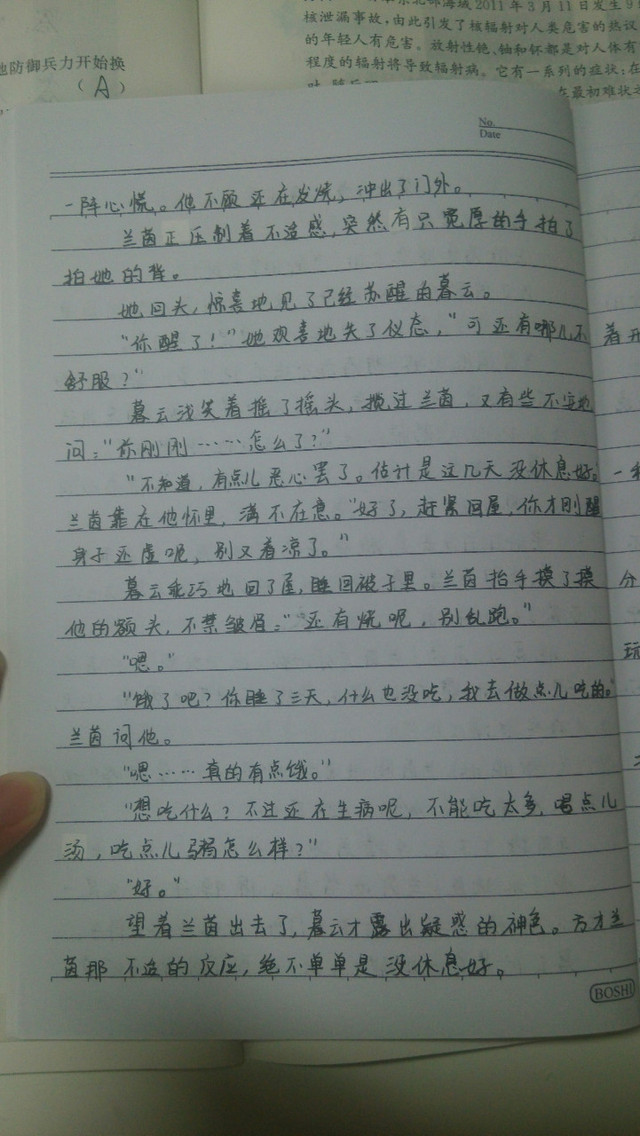 东北部海域2011年3月11日发生9
核泄漏事故，由此引发了核辐射对人类危害的热议
的年轻人有危害。放射性铯、铀和钚都是对人体有
程度的辐射将导致辐射病。它有一系列的症状：在
在最初难状
地防御兵力开始换
（A）
No.
Date
一阵心慌。他不顾还在发烧，冲出了门外。
兰茵正压制着不适感，突然有只宽厚的手拍了
拍她的背。
她回头，惊喜地见了已经苏醒的暮云。
“你醒了！”她欢喜地失了仪态，“可还有哪儿不
舒服？”
暮云浅笑着摇了摇头，揽过兰茵，又有些不安地
问：“你刚刚……怎么了？”
“不知道，有点儿恶心罢了。估计是这几天没休息好。
兰茵靠在他怀里，满不在意。“好了，赶紧回屋，你才刚醒
身子还虚呢，别又着凉了。”
暮云乖巧地回了屋，睡回被子里。兰茵抬手摸了摸
他的额头，不禁皱眉：“还有烧呢，别乱跑。”
“嗯。”
“饿了吧？你睡了三天，什么也没吃，我去做点儿吃的。”
兰茵问他。
“嗯……真的有点饿。”
“想吃什么？不过还在生病呢，不能吃太多，喝点儿
汤，吃点儿粥怎么样？”
“好。”
望着兰茵出去了，暮云才露出疑惑的神色。方才兰
茵那不适的反应，绝不单单是没休息好。
BOSHI
着
一
分
玩